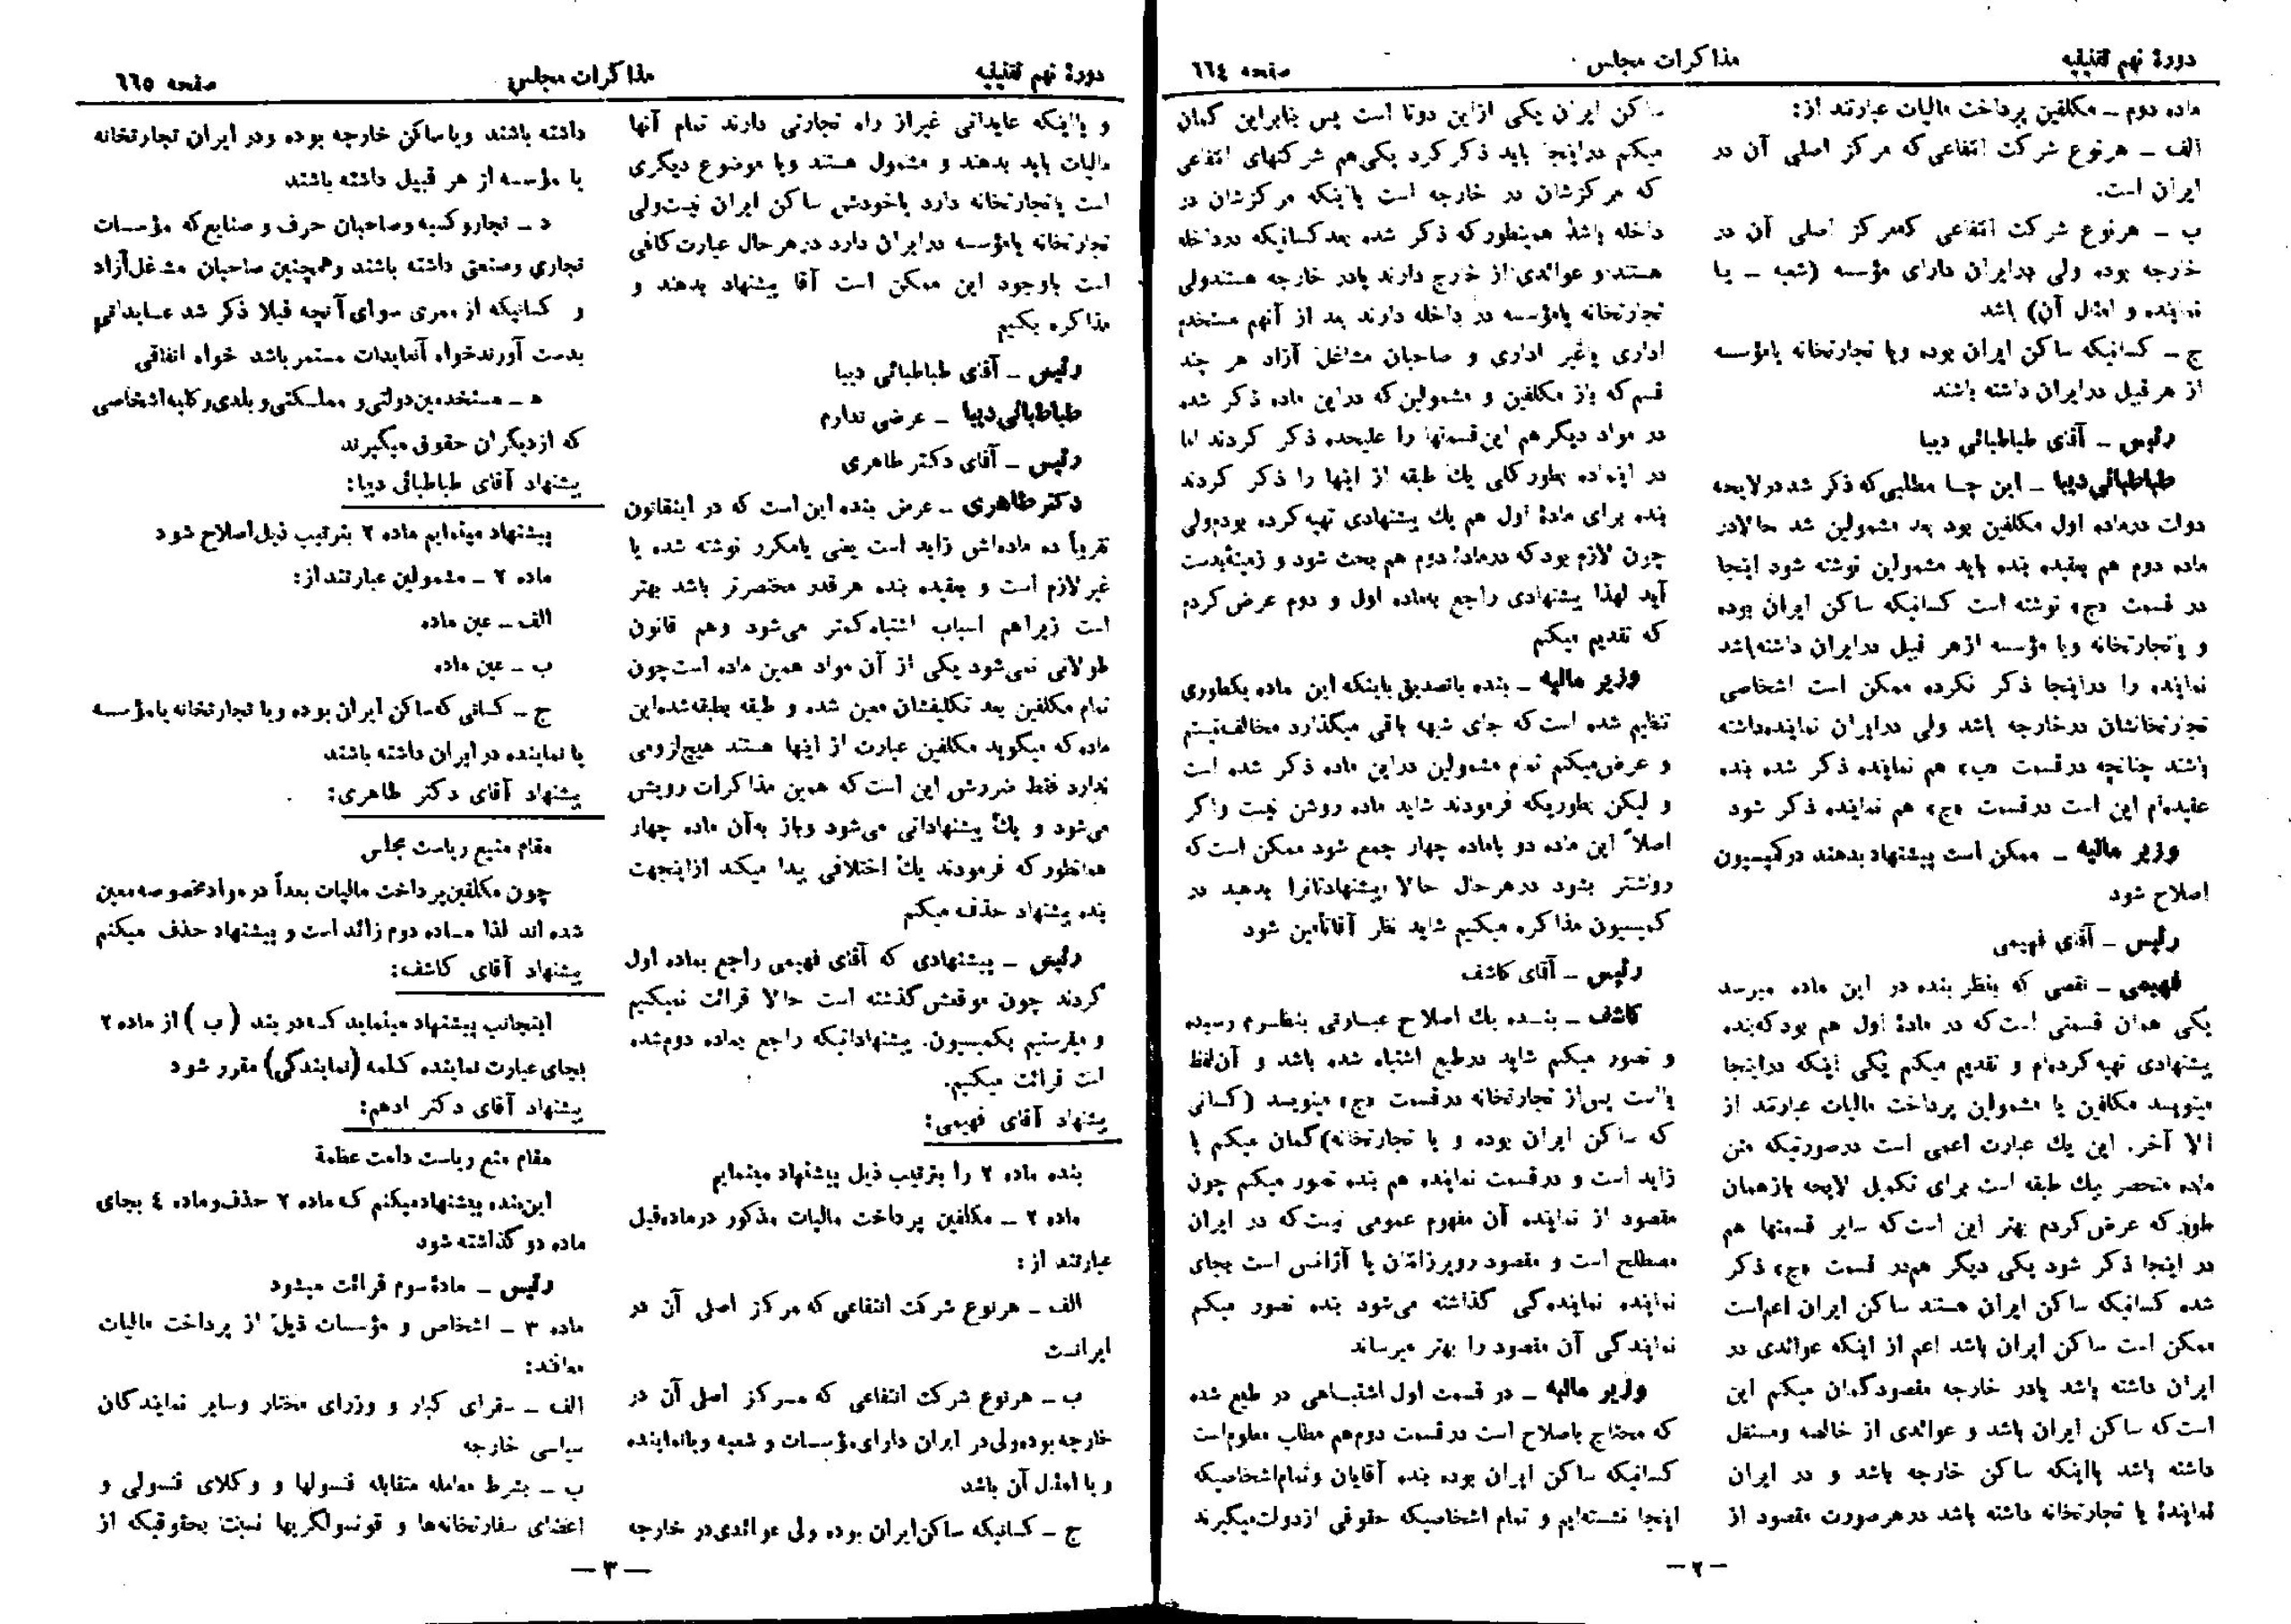 دورهٔ نهم تقنینیه
مذاکرات مجلس
صفحه ٦٦٤
ماده دوم ـ مکلفین پرداخت مالیات عبارتند از:
الف ـ هرنوع شرکت انتفاعی که مرکز اصلی آن در
ایران است.
ب ـ هرنوع شرکت انتفاعی که مرکز اصلی آن در
خارجه بوده ولی در ایران دارای مؤسسه (شعبه ـ یا
نماینده و امثال آن) باشد
ج ـ کسانیکه ساکن ایران بوده ویا تجارتخانه یا مؤسسه
از هر قبیل در ایران داشته باشند
رئیس ـ آقای طباطبائی دیبا
طباطبائی دیبا ـ این جا مطالبی که ذکر شد در لایحه
دولت در ماده اول مکلفین بود بعد مشمولین شد حالا در
ماده دوم هم بعقیده بنده باید مشمولین نوشته شود اینجا
در قسمت «ج» نوشته است کسانیکه ساکن ایران بوده
و یا تجارتخانه ویا مؤسسه از هر قبیل در ایران داشته باشد
نماینده را در اینجا ذکر نکرده ممکن است اشخاصی
تجارتخانشان در خارجه باشد ولی در ایران نماینده داشته
باشند چنانچه در قسمت «ب» هم نماینده ذکر شده بنده
عقیده‌ام این است در قسمت «ج» هم نماینده ذکر شود
وزیر مالیه ـ ممکن است پیشنهاد بدهند در کمیسیون
اصلاح شود
رئیس ـ آقای فهیمی
فهیمی ـ نقصی که بنظر بنده در این ماده میرسد
یکی همان قسمتی است که در مادهٔ اول هم بود که بنده
پیشنهادی تهیه کرده‌ام و تقدیم میکنم یکی اینکه در اینجا
مینویسد مکلفین یا مشمولین پرداخت مالیات عبارتند از
الا آخر. این یك عبارت اعمی است در صورتیکه متن
ماده منحصر بیك طبقه است برای تکمیل لایحه باز همان
طور که عرض کردم بهتر این است که سایر قسمتها هم
در اینجا ذکر شود یکی دیگر هم در قسمت «ج» ذکر
شده کسانیکه ساکن ایران هستند ساکن ایران اعم است
ممکن است ساکن ایران باشد اعم از اینکه عوائدی در
ایران داشته باشد یا در خارجه مقصود گمان میکنم این
است که ساکن ایران باشد و عوائدی از خالصه ومستقل
داشته باشد یا اینکه ساکن خارجه باشد و در ایران
نمایندهٔ یا تجارتخانه داشته باشد در هر صورت مقصود از
ساکن ایران یکی از این دوتا است پس بنابراین گمان
میکنم در اینجا باید ذکر کرد یکی هم شرکتهای انتفاعی
که مرکزشان در خارجه است یا اینکه مرکزشان در
داخله باشد همینطور که ذکر شده بعد کسانیکه در داخله
هستند و عوائدی از خارج دارند یا در خارجه هستند ولی
تجارتخانه یا مؤسسه در داخله دارند بعد از آنهم مستخدم
اداری یا غیر اداری و صاحبان مشاغل آزاد هر چند
قسم که باز مکلفین و مشمولین که در این ماده ذکر شده
در مواد دیگر هم این قسمتها را علیحده ذکر کردند اما
در اینماده بطور کلی یك طبقه از اینها را ذکر کردند
بنده برای مادهٔ اول هم یك پیشنهادی تهیه کرده بودم ولی
چون لازم بود که در مادهٔ دوم هم بحث شود و زمینه بدست
آید لهذا پیشنهادی راجع به ماده اول و دوم عرض کردم
که تقدیم میکنم
وزیر مالیه ـ بنده با تصدیق باینکه این ماده یکطوری
تنظیم شده است که جای شبهه باقی میگذارد مخالف نیستم
و عرض میکنم تمام مشمولین در این ماده ذکر شده است
و لیکن بطوریکه فرمودند شاید ماده روشن نیست واگر
اصلاً این ماده دو با ماده چهار جمع شود ممکن است که
روشنتر بشود در هر حال حالا پیشنهادتانرا بدهید در
کمیسیون مذاکره میکنیم شاید نظر آقا تأمین شود
رئیس ـ آقای کاشف
کاشف ـ بنده یك اصلاح عبارتی بنظرم رسیده
و تصور میکنم شاید در طبع اشتباه شده باشد و آن لفظ
یا است پس از تجارتخانه در قسمت «ج» مینویسد (کسانی
که ساکن ایران بوده و یا تجارتخانه) گمان میکنم یا
زاید است و در قسمت نماینده هم بنده تصور میکنم چون
مقصود از نماینده آن مفهوم عمومی نیست که در ایران
مصطلح است و مقصود روپرزانتان یا آژانس است بجای
نماینده نمایندگی گذاشته می‌شود بنده تصور میکنم
نمایندگی آن مقصود را بهتر میرساند
وزیر مالیه ـ در قسمت اول اشتباهی در طبع شده
که محتاج باصلاح است در قسمت دوم هم مطلب معلوم است
کسانیکه ساکن ایران بوده بنده آقایان وتمام اشخاصیکه
اینجا نشسته‌ایم و تمام اشخاصیکه حقوقی از دولت میگیرند
ـ ۲ ـ
دورهٔ نهم تقنینیه
مذاکرات مجلس
صفحه ٦٦٥
و یا اینکه عایداتی غیر از راه تجارتی دارند تمام آنها
مالیات باید بدهند و مشمول هستند ویا موضوع دیگری
است یا تجارتخانه دارد یا خودش ساکن ایران نیست ولی
تجارتخانه یا مؤسسه در ایران دارد در هر حال عبارت کافی
است باوجود این ممکن است آقا پیشنهاد بدهند و
مذاکره بکنیم
رئیس ـ آقای طباطبائی دیبا
طباطبائی دیبا ـ عرضی ندارم
رئیس ـ آقای دکتر طاهری
دکتر طاهری ـ عرض بنده این است که در اینقانون
تقریباً ده ماده‌اش زاید است یعنی یا مکرر نوشته شده یا
غیر لازم است و بعقیده بنده هر قدر مختصرتر باشد بهتر
است زیرا هم اسباب اشتباه کمتر می‌شود وهم قانون
طولانی نمی‌شود یکی از آن مواد همین ماده است چون
تمام مکلفین بعد تکلیفشان معین شده و طبقه بطبقه شده این
ماده که میگوید مکلفین عبارت از اینها هستند هیچ لزومی
ندارد فقط ضررش این است که همین مذاکرات رویش
می‌شود و یك پیشنهاداتی می‌شود وباز به آن ماده چهار
همانطور که فرمودند یك اختلافی پیدا میکند از اینجهت
بنده پیشنهاد حذف میکنم
رئیس ـ پیشنهادی که آقای فهیمی راجع بماده اول
کردند چون موقعش گذشته است حالا قرائت نمیکنیم
و میفرستیم بکمیسیون. پیشنهاداتیکه راجع بماده دوم شده
است قرائت میکنیم.
پیشنهاد آقای فهیمی:
بنده ماده ۲ را بترتیب ذیل پیشنهاد مینمایم
ماده ۲ ـ مکلفین پرداخت مالیات مذکور در ماده قبل
عبارتند از:
الف ـ هرنوع شرکت انتفاعی که مرکز اصلی آن در
ایرانست
ب ـ هرنوع شرکت انتفاعی که مرکز اصلی آن در
خارجه بوده ولی در ایران دارای مؤسسات و شعبه ویا نماینده
و یا امثال آن باشد
ج ـ کسانیکه ساکن ایران بوده ولی عوائدی در خارجه
داشته باشند ویا ساکن خارجه بوده ودر ایران تجارتخانه
یا مؤسسه از هر قبیل داشته باشند
د ـ تجار وکسبه وصاحبان حرف و صنایع که مؤسسات
تجاری وصنعتی داشته باشند وهمچنین صاحبان مشاغل آزاد
و کسانیکه از ممری سوای آنچه قبلا ذکر شد عایداتی
بدست آورند خواه آنعایدات مستمر باشد خواه اتفاقی
ه ـ مستخدمین دولتی و مملکتی و بلدی و کلیه اشخاصی
که از دیگران حقوق میگیرند
پیشنهاد آقای طباطبائی دیبا:
پیشنهاد مینمایم ماده ۲ بترتیب ذیل اصلاح شود
ماده ۲ ـ مشمولین عبارتند از:
الف ـ عین ماده
ب ـ عین ماده
ج ـ کسانی که ساکن ایران بوده ویا تجارتخانه یا مؤسسه
یا نماینده در ایران داشته باشند
پیشنهاد آقای دکتر طاهری:
مقام منیع ریاست مجلس
چون مکلفین پرداخت مالیات بعداً در مواد مخصوصه معین
شده اند لذا ماده دوم زائد است و پیشنهاد حذف میکنم
پیشنهاد آقای کاشف:
اینجانب پیشنهاد مینماید که در بند (ب) از ماده ۲
بجای عبارت نماینده کلمه (نمایندگی) مقرر شود
پیشنهاد آقای دکتر ادهم:
مقام منیع ریاست دامت عظمة
این بنده پیشنهاد میکنم که ماده ۲ حذف وماده ٤ بجای
ماده دو گذاشته شود
رئیس ـ مادهٔ سوم قرائت میشود
ماده ۳ ـ اشخاص و مؤسسات ذیل از پرداخت مالیات
معافند:
الف ـ سفرای کبار و وزرای مختار وسایر نمایندگان
سیاسی خارجه
ب ـ بشرط معامله متقابله قنسولها و وکلای قنسولی و
اعضای سفارتخانه‌ها و قونسولگریها نسبت بحقوقیکه از
ـ ۳ ـ